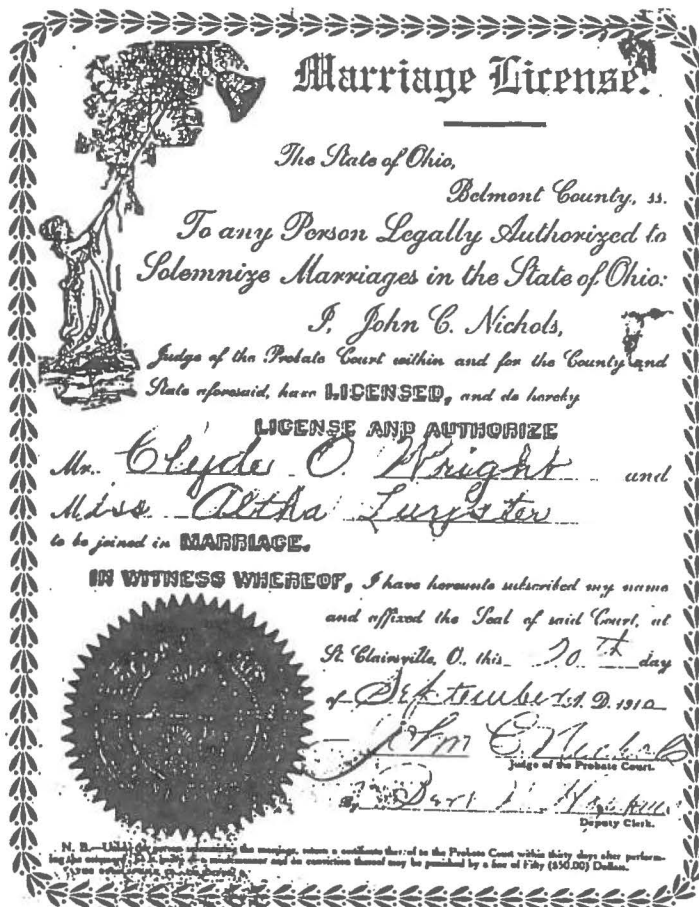 Marriage License.
The State of Ohio,
Belmont County, ss.
To any Person Legally Authorized to
Solemnize Marriages in the State of Ohio:
I, John C. Nichols,
Judge of the Probate Court within and for the County and
State aforesaid, have LICENSED, and do hereby
LICENSE AND AUTHORIZE
Mr. Clyde O. Wright and
Miss Altha
to be joined in MARRIAGE.
IN WITNESS WHEREOF, I have hereunto subscribed my name
and affixed the Seal of said Court, at
St. Clairsville, O., this 20th day
of September A. D. 1910
C Nichols
Judge of the Probate Court.
By
Deputy Clerk.
N. B.—Unless the person the marriage, return a certificate thereof to the Probate Court within thirty days after perform-
ing the and on conviction thereof may be punished by a fine of Fifty ($50.00) Dollars.